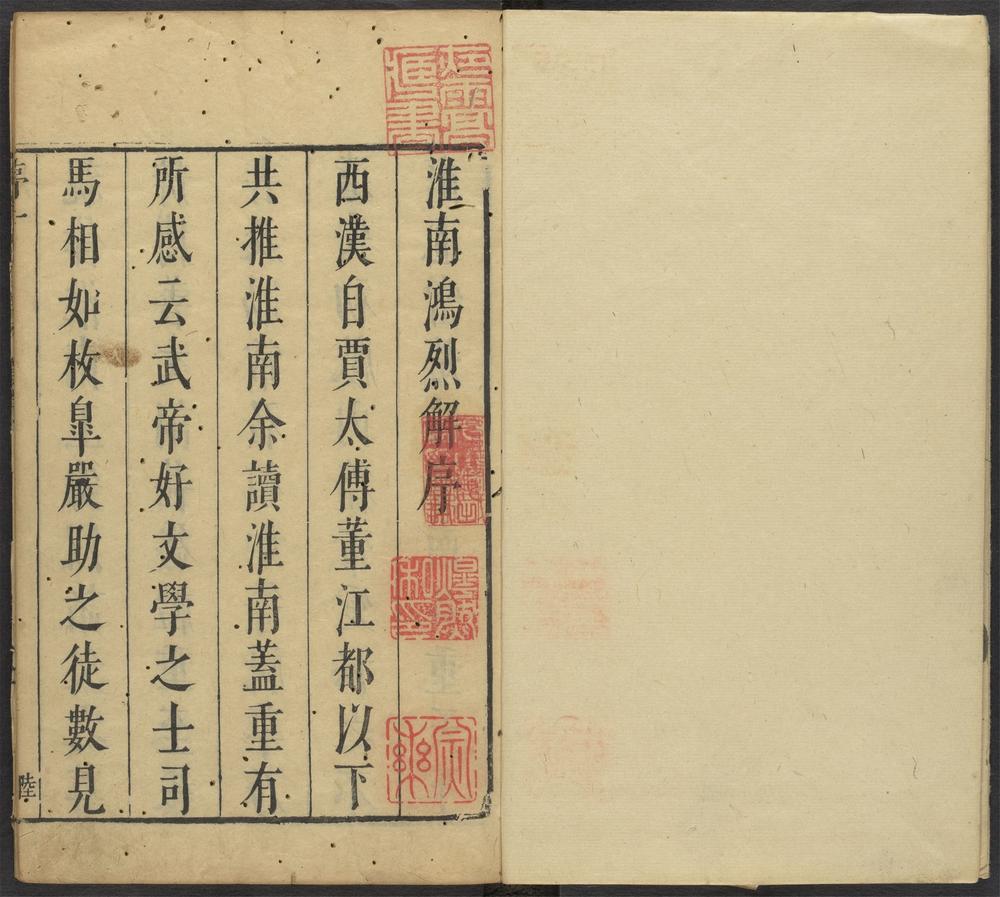 淮南鴻烈解序
西漢自賈太傅董江都以下
共推淮南余讀淮南蓋重有
所感云武帝好文學之士司
馬相如枚臯嚴助之徒數見
序一
陸